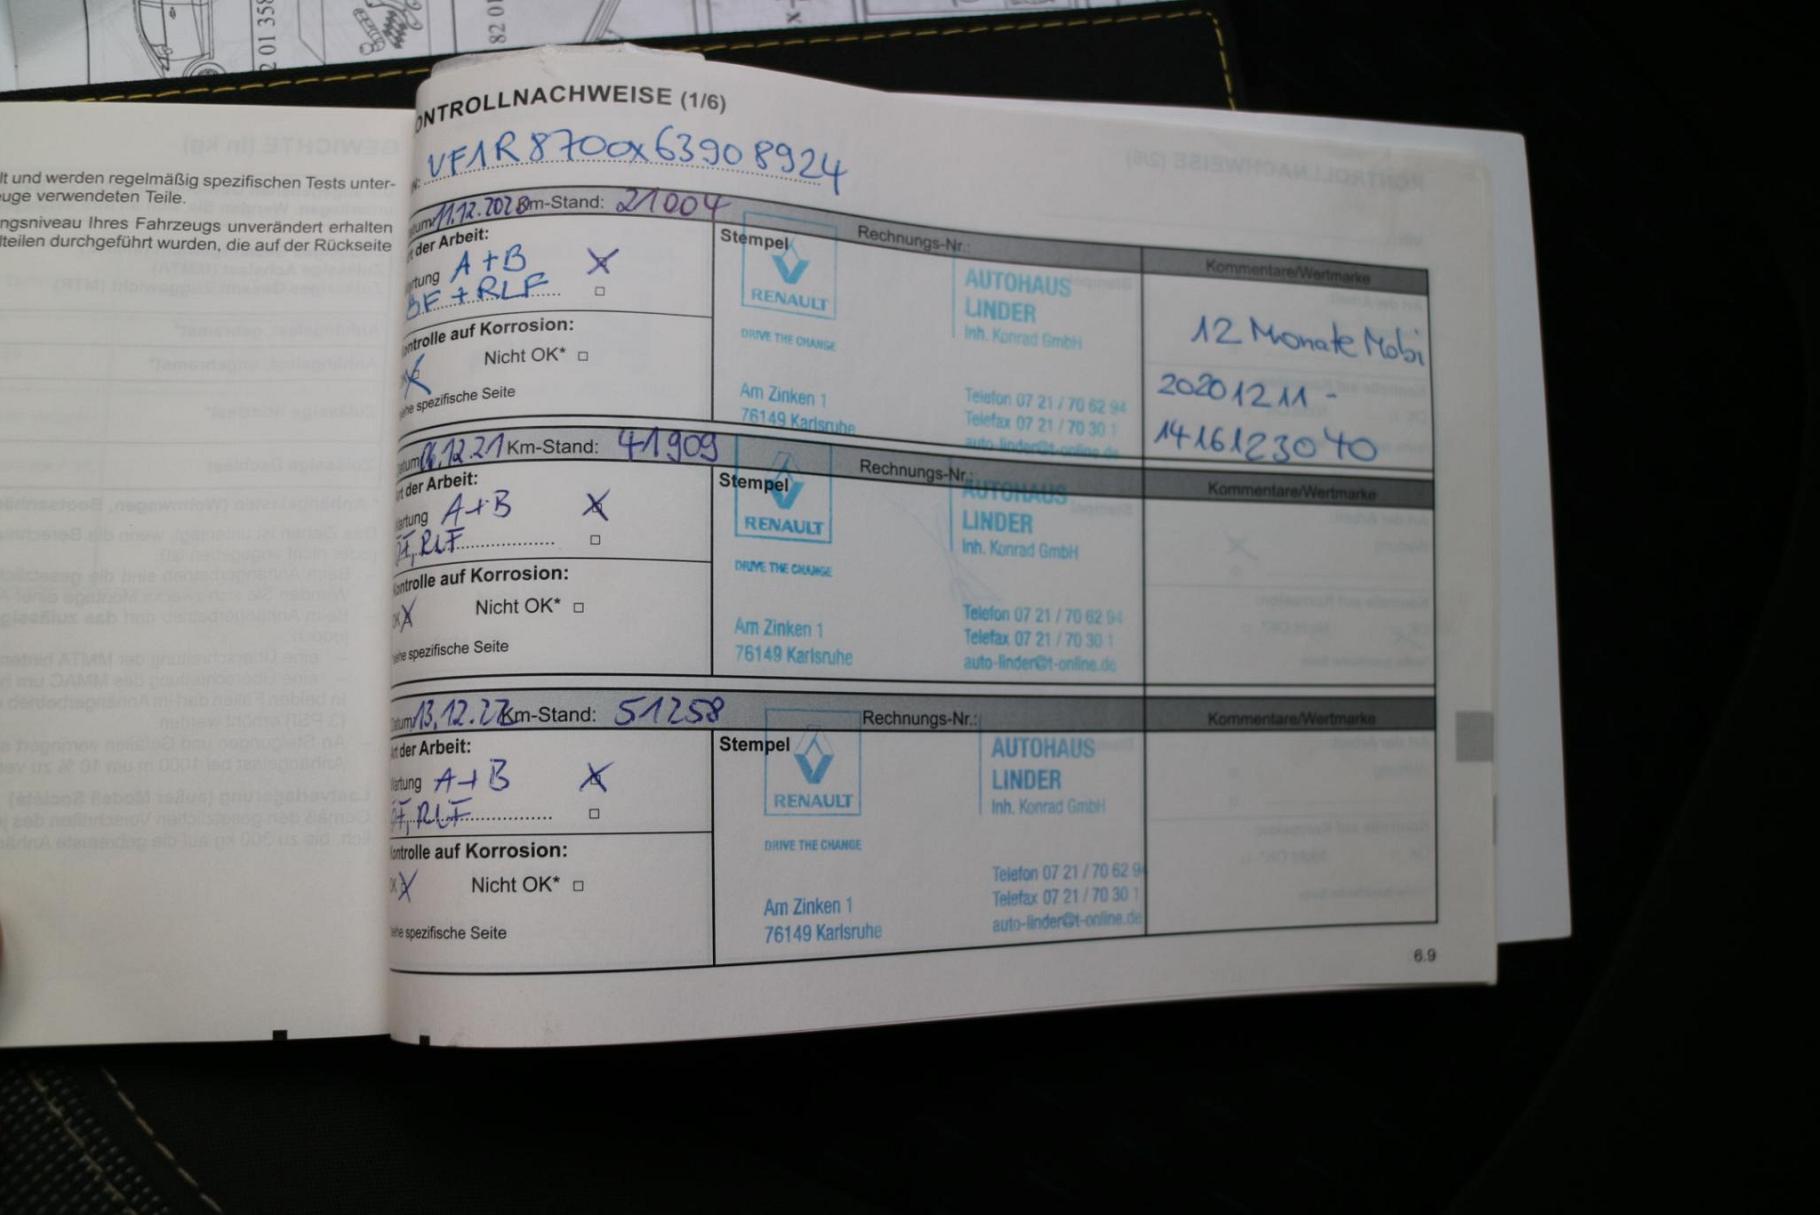 2 01 358
82 01
lt und werden regelmäßig spezifischen Tests unter-
uge verwendeten Teile.
ngsniveau Ihres Fahrzeugs unverändert erhalten
lteilen durchgeführt wurden, die auf der Rückseite
ONTROLLNACHWEISE (1/6)
VF1R8700x63908924
11.12.2020 Km-Stand: 21004
Stempel
Rechnungs-Nr.:
Kommentare/Wertmarke
t der Arbeit:
rtung A+B
BF + RLF
ontrolle auf Korrosion:
Nicht OK*
ehe spezifische Seite
RENAULT
DRIVE THE CHANGE
Am Zinken 1
76149 Karlsruhe
AUTOHAUS
LINDER
Inh. Konrad GmbH
Telefon 07 21 / 70 62 94
Telefax 07 21 / 70 30 1
auto-linder@t-online.de
12 Monate Mobi
20201211 -
1416123040
atum 06.12.21 Km-Stand: 41909
Stempel
Rechnungs-Nr.:
Kommentare/Wertmarke
t der Arbeit:
artung A+B
BF, RLF
ontrolle auf Korrosion:
OK
Nicht OK*
ehe spezifische Seite
RENAULT
DRIVE THE CHANGE
Am Zinken 1
76149 Karlsruhe
AUTOHAUS
LINDER
Inh. Konrad GmbH
Telefon 07 21 / 70 62 94
Telefax 07 21 / 70 30 1
auto-linder@t-online.de
atum 13.12.22 Km-Stand: 51258
Stempel
Rechnungs-Nr.:
Kommentare/Wertmarke
t der Arbeit:
artung A+B
BF, RLF
ontrolle auf Korrosion:
OK
Nicht OK*
ehe spezifische Seite
RENAULT
DRIVE THE CHANGE
Am Zinken 1
76149 Karlsruhe
AUTOHAUS
LINDER
Inh. Konrad GmbH
Telefon 07 21 / 70 62 9
Telefax 07 21 / 70 30 1
auto-linder@t-online.de
6.9